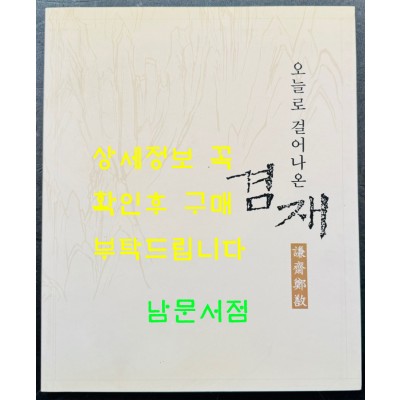 오늘로 걸어나온
겸재
謙齋鄭敾
상세정보 꼭
확인후 구매
부탁드립니다
남문서점